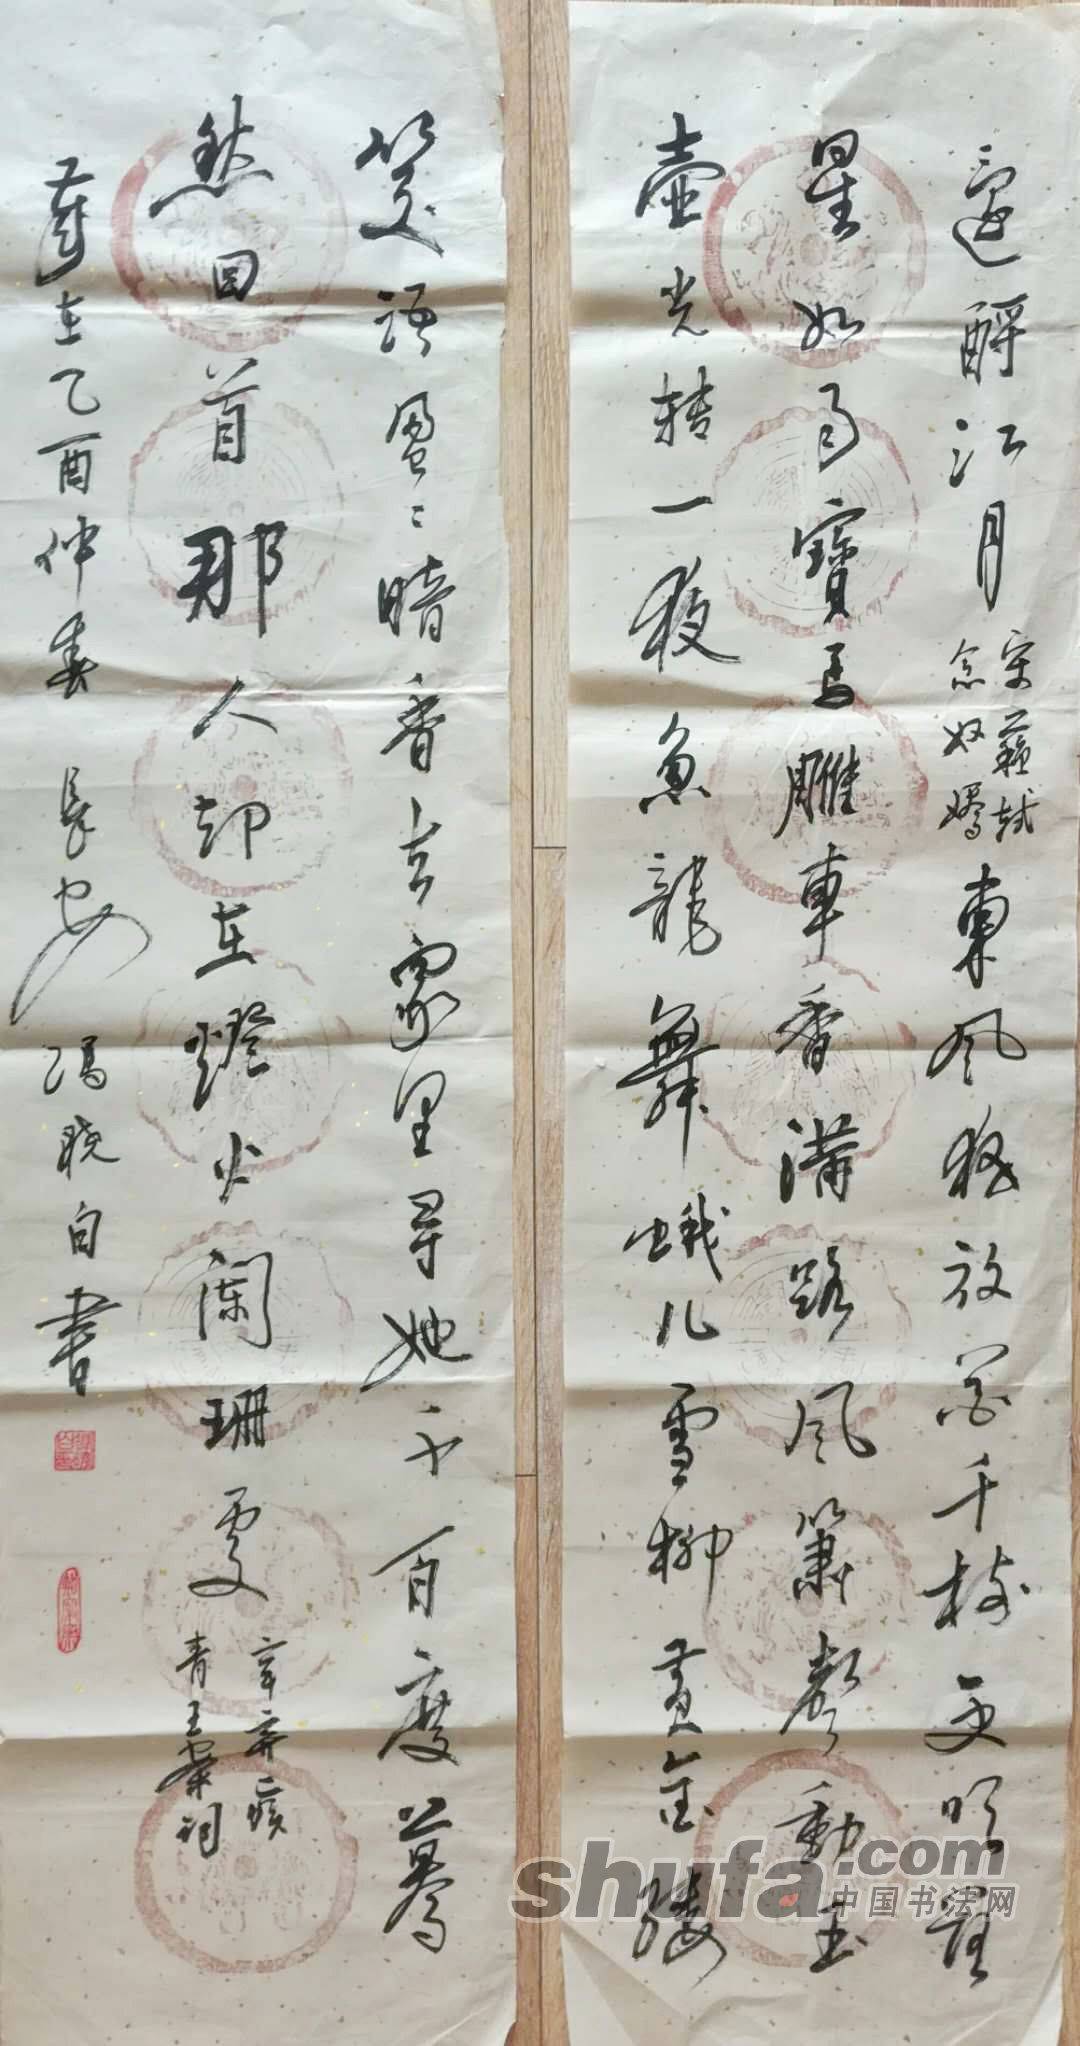 還酹江月
宋蘇軾
念奴嬌
東风夜放花千樹更吹
星如雨寶馬雕車香滿路风簫聲動玉
壺光轉一夜魚龍舞蛾儿雪柳黃金縷
笑語盈〻暗香去眾里尋她千百度驀
然回首那人却在燈火闌珊處
辛弃疾
青玉案詞
歲在乙酉仲春 長安 馮晓白書
shufa.com
中国书法网